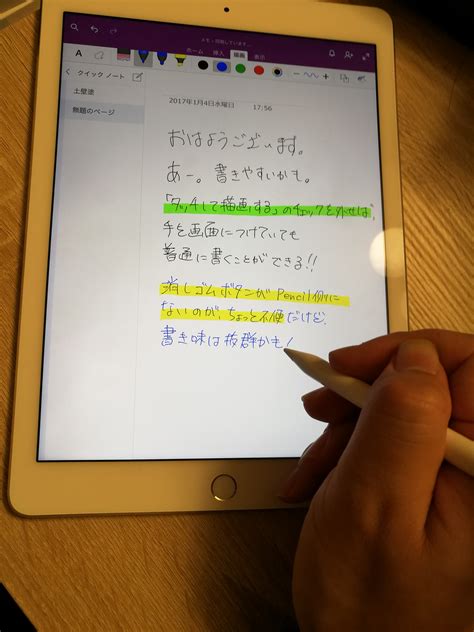 メモ - 同期しています...
ホーム 挿入 描画 表示
A
クイック ノート
土壁塗
無題のページ
2017年1月4日水曜日 17:56
おはようございます。
あー。書きやすいかも。
「タッチして描画する」のチェックを外せば、
手を画面につけていても
普通に書くことができる!!
消しゴムボタンがPencil側に
ないのが、ちょっと不便だけど、
書き味は抜群かも!